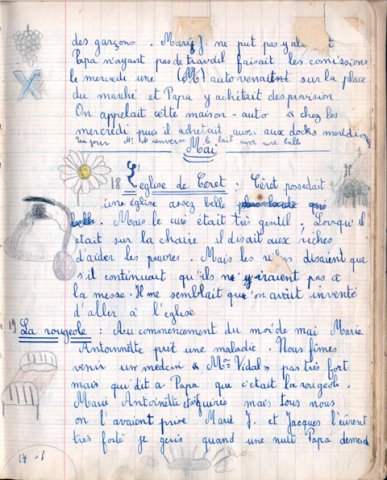 des garçons. Marie J. ne put pas y alle
Papa n'ayant pas de travail faisait les comissions
le mercredi une (M) auto venaient sur la place
du marché et Papa y achêtait des provision.
On appelait cette maison-auto « chez les
mercredi puis il achetait aussi aux docks méridio
un jour M. J. renversa le lait avec une balle
Mai
18 L'eglise de Céret : Céret posedait
une église assez belle
Mais le curé était très gentil. Lorsqu'il
etait sur la chaire il disait aux riches
d'aider les pauvres. Mais les riches disaient que
s'il continuait qu'ils n'y iraient pas à
la messe. Il me semblait que on avait inventé
d'aller à l'eglise
19 La rougeole : Au commencement du moi de mai Marie
Antoinnette prit une maladie. Nous fîmes
venir un médecin « Mr Vidal » pas très fort
mais qui dit a Papa que c'etait la rougeole.
Marie Antoinette était guérie mais tous nous
on l'avaient prise Marie J. et Jacques l'eurent
très forte je guéris quand une nuit Papa demeu